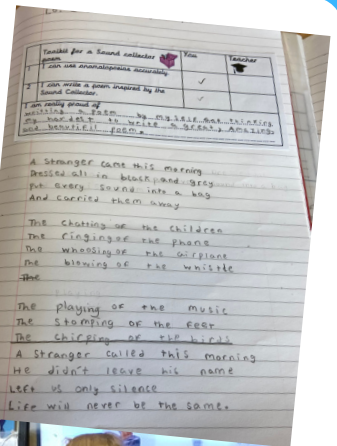 Toolkit for a Sound collector poem
You
Teacher
1 I can use onomatopoeia accurately.
2 I can write a poem inspired by the Sound Collector.
I am really proud of
writting a poem by my self and thinking
my hardest to write a great, amazing,
and beautifull poem.
A Stranger came this morning
Dressed all in black and grey
Put every sound into a bag
And carried them away
The chatting of the children
The ringing of the phone
The whoosing of the airplane
The blowing of the whistle
The
The playing of the music
The Stomping of the Feet
The chirping of the birds
A Stranger called this morning
He didn't leave his name
Left us only silence
Life will never be the same.